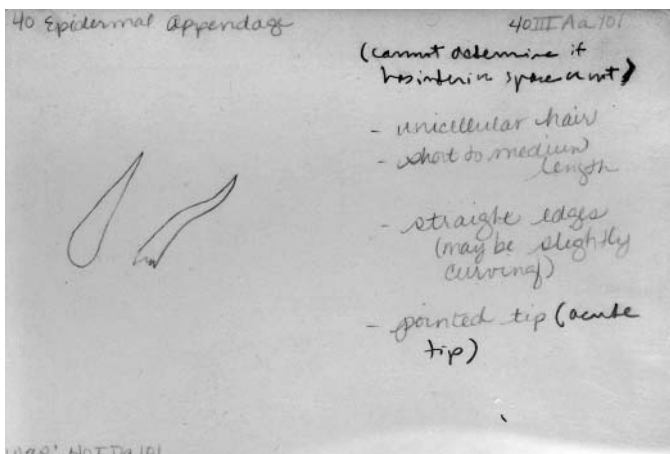 40 Epidermal Appendage
40III Aa 101
(cannot determine if
has interior space or not)
- unicellular hair
- short to medium
length
- straight edges
(may be slightly
curving)
- pointed tip (acute
tip)